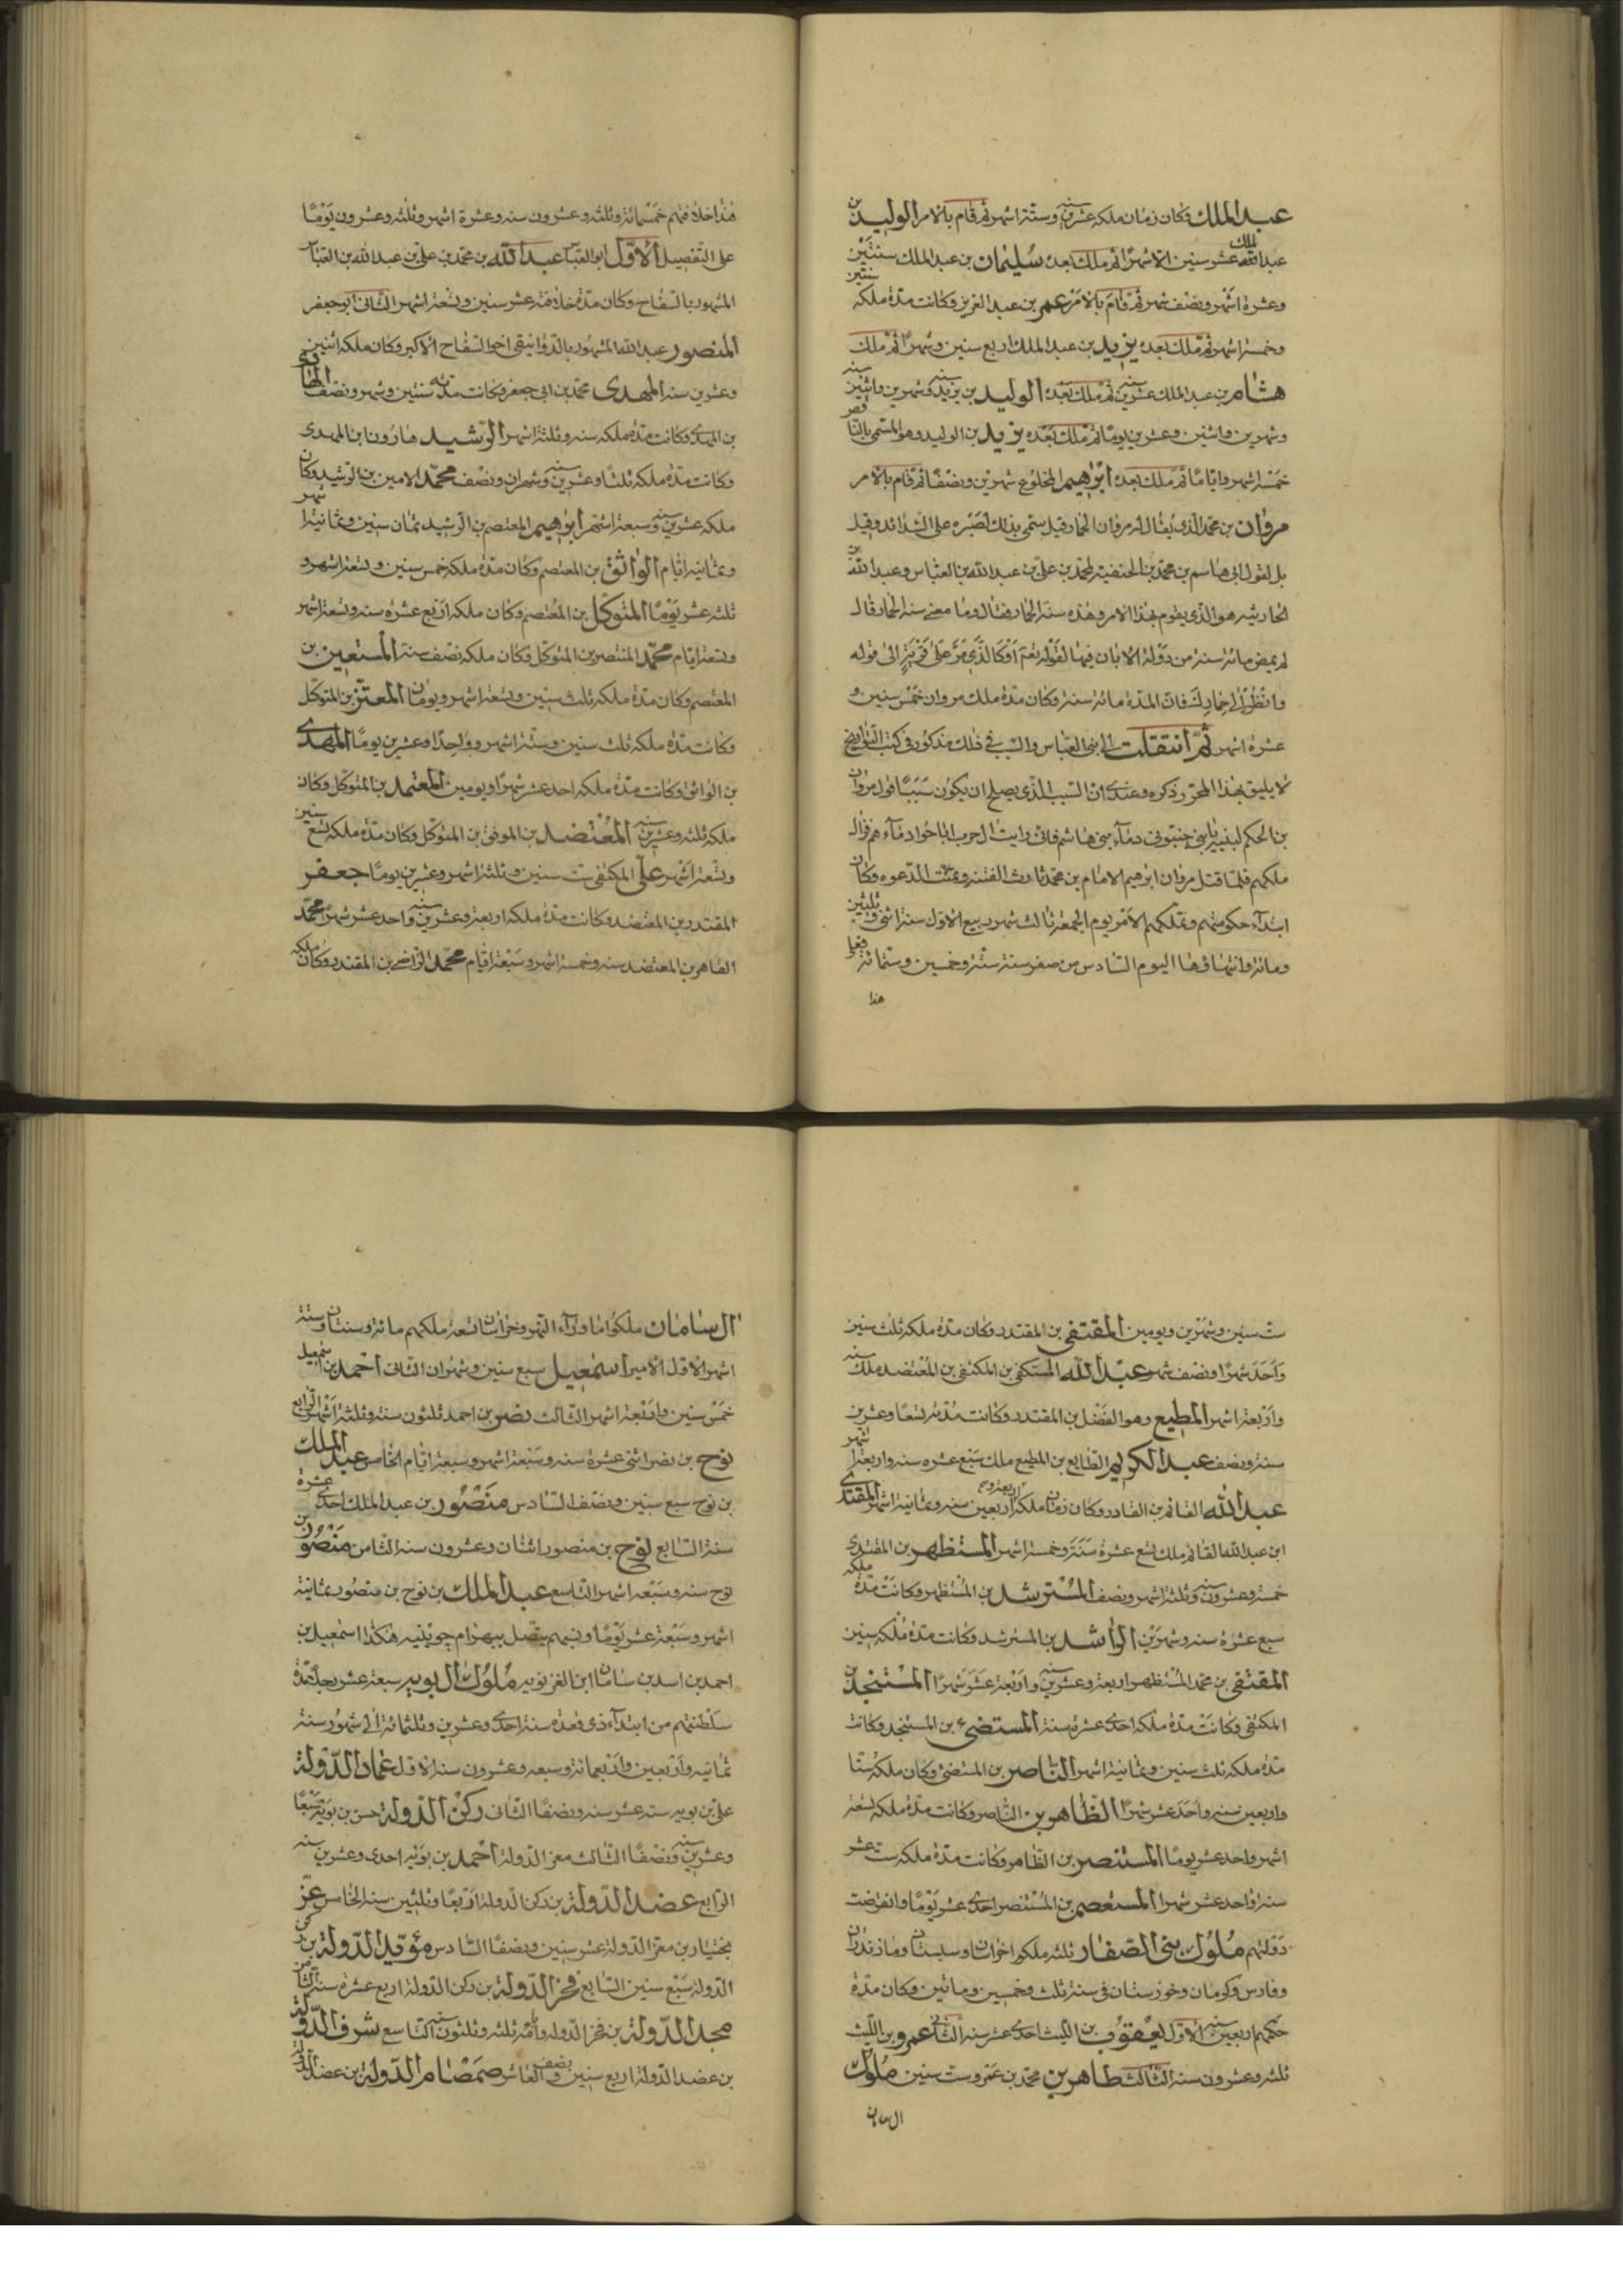 عبد الملك وكان زمان ملكه عشرين سنه وستة اشهر ثم قام بالامر الوليد بن
عبد الملك عشر سنين الا شهرا ثم ملك بعده سليمان بن عبد الملك سنتين
وعشرة اشهر ونصف شهر ثم قام بالامر عمر بن عبد العزيز وكانت مدة ملكه سنتين
وخمسة اشهر ثم ملك بعده يزيد بن عبد الملك اربع سنين وشهرا ثم ملك
هشام بن عبد الملك عشرين سنه ثم ملك بعده الوليد بن يزيد سنه وشهرين واثنين سنه
وشهرين واثنين وعشرين يوما ثم ملك بعده يزيد بن الوليد وهو المسمى بالناقص
خمسة اشهر واياما ثم ملك بعده ابراهيم المخلوع شهرين ونصفا ثم قام بالامر
مروان بن محمد الذى يقال له مروان الحمار وقيل سمى بذلك لصبره على الشدائد وقيل
بل لقول ابى هاشم بن محمد بن الحنفية لمحمد بن على بن عبد الله بن العباس وعبد الله بن
الحارثيه هو الذى يقوم بهذا الامر وهذه سنة الحمار فقال وما معنى سنة الحمار قال
لم يمض مائة سنة من دولة الا بان فيها لقوله تعم اوكالذى مر على قرية الى قوله
وانظر الى حمارك فان المدة مائة سنة وكان مدة ملك مروان خمس سنين و
عشرة اشهر ثم انتقلت الى بنى العباس والسبب فى ذلك مذكور فى كتب التواريخ
لا يليق بهذا المحرر ذكره وعندى ان السبب الذى يصلح ان يكون سببا قول مروان
بن الحكم لبنيه يا بنى جنبونى دماء بنى هاشم فانى رايت ال حرب لما باحوا دماءهم زال
ملكهم فلما قتل مروان ابرهيم الامام بن محمد ثارت الفتنه وتمت الدعوه وكان
ابتداء حكومتهم وتملكهم الامر يوم الجمعة ثالث شهر ربيع الاول سنة اثنى وثلثين
ومائة وانتهاؤها اليوم السادس من صفر سنة ستة وخمسين وستمائة فعلى
هذا
هذا خلافتهم خمسمائة وثلثه وعشرون سنه وعشرة اشهر وثلثه وعشرون يوما
على التفصيل الاول ابو العباس عبد الله بن محمد بن على بن عبد الله بن العباس
المشهور بالسفاح وكان مدة خلافته عشر سنين وتسعة اشهر الثانى ابو جعفر
المنصور عبد الله المشهور بالدوانيقى اخو السفاح الاكبر وكان ملكه اثنين
وعشرين سنه المهدى محمد بن ابى جعفر وكانت مدته سنتين وشهر ونصف الهادى
بن المهدى وكانت مدة ملكه سنه وثلثة اشهر الرشيد هارون ابن المهدى
وكانت مدة ملكه ثلثا وعشرين سنه وشهران ونصف محمد الامين بن الرشيد وكان
ملكه عشرين سنه وسبعة اشهر ابرهيم المعتصم بن الرشيد ثمان سنين وثمانية اشهر
وثمانية ايام الواثق بن المعتصم وكان مدة ملكه خمس سنين وتسعة اشهر و
ثلثه عشر يوما المتوكل بن المعتصم وكان ملكه اربع عشره سنه وتسعة اشهر
وتسعة ايام محمد المنتصر بن المتوكل وكان ملكه نصف سنة المستعين بن
المعتصم وكان مدة ملكه ثلث سنين وتسعة اشهر ويومان المعتز بن المتوكل
وكانت مدة ملكه ثلث سنين وستة اشهر وواحدا وعشرين يوما المهدى
بن الواثق وكانت مدة ملكه احد عشر شهرا ويومين المعتمد بن المتوكل وكان
ملكه ثلثه وعشرين سنه المعتضد بن الموفق بن المتوكل وكان مدة ملكه تسع سنين
وتسعة اشهر على المكتفى ست سنين وثلثة اشهر وعشرين يوما جعفر
المقتدر بن المعتضد وكانت مدة ملكه اربعة وعشرين سنه واحد عشر شهرا محمد
القاهر بن المعتضد سنه وخمسة اشهر وسبعة ايام محمد الراضى بن المقتدر وكان ملكه
ست سنين وشهرين ويومين المقتفى بن المقتدر وكان مدة ملكه ثلث سنين
واحد شهرا ونصف شهر عبد الله المستكفى بن المكتفى بن المعتضد ملك سنه
واربعة اشهر المطيع وهو الفضل بن المقتدر وكانت مدته تسعا وعشرين
سنة ونصف عبد الكريم الطايع بن المطيع ملك سبع عشره سنه واربعة اشهر
عبد الله القائم بن القادر وكان زمان ملكه اربعين سنه وثمانية اشهر المقتدى
ابن عبد الله القائم ملك تسع عشرة سنة وخمسة اشهر المستظهر بن المقتدى
خمسة وعشرون سنه وثلثة اشهر ونصف المسترشد بن المستظهر وكانت مدة ملكه
سبع عشرة سنه وشهرين الراشد بن المسترشد وكانت مدة ملكه سنين
المقتفى بن محمد المستظهر اربعة وعشرين سنه واربعة عشر شهرا المستنجد بن
المكتفى وكانت مدة ملكه احدى عشرة سنة المستضئ بن المستنجد وكانت
مدة ملكه ثلث سنين وثمانية اشهر الناصر بن المستضئ وكان ملكه ستا
واربعين سنه واحد عشر شهرا الظاهر بن الناصر وكانت مدة ملكه تسعة
اشهر واحد عشر يوما المستنصر بن الظاهر وكانت مدة ملكه ست عشر
سنة واحد عشر شهرا المستعصم بن المستنصر احدى عشر يوما وانقرضت
دولتهم ملوك بنى الصفار ثلثه ملكوا خراسان وسيستان ومازندران
وفارس وكرمان وخوزستان فى سنة ثلث وخمسين ومائتين وكان مدة
حكمهم اربعين سنه الاول يعقوب بن الليث احدى عشر سنه الثانى عمرو بن الليث
ثلثه وعشرون سنه الثالث طاهر بن محمد بن عمرو ست سنين ملوك
ال سامان
ال سامان ملكوا ما وراء النهر وخراسان تسعة ملكهم مائة وسنتان وستة
اشهر الاول الامير اسمعيل سبع سنين وشهران الثانى احمد بن اسمعيل
خمس سنين واربعة اشهر الثالث نصر بن احمد ثلثون سنة وثلثة اشهر الرابع
نوح بن نصر اثنى عشرة سنه وسبعة اشهر وسبعة ايام الخامس عبد الملك
بن نوح سبع سنين ونصف السادس منصور بن عبد الملك احدى عشرة
سنة السابع نوح بن منصور اثنان وعشرون سنه الثامن منصور بن
نوح سنه وسبعه اشهر التاسع عبد الملك بن نوح بن منصور ثمانية
اشهر وسبعة عشر يوما ونسبهم يتصل ببهرام چوبينه هكذا اسمعيل بن
احمد بن اسد بن سامان ملوك ال بويه سبعة عشر رجلا مدة
سلطنتهم من ابتداء ذى قعدة سنة احدى وعشرين وثلثمائة الى شهور سنة
ثمانيه واربعين واربعمائة وسبعه وعشرون سنه الاول عماد الدولة
على بن بويه ستة عشر سنه ونصفا الثانى ركن الدولة حسن بن بويه سبعا
وعشرين سنه ونصفا الثالث معز الدولة احمد بن بويه احدى وعشرين سنه
الرابع عضد الدولة بن ركن الدولة اربعا وثلثين سنه الخامس عز
بختيار بن معز الدولة عشر سنين ونصفا السادس مؤيد الدولة بن ركن
الدولة سبع سنين السابع فخر الدولة بن ركن الدولة اربع عشرة سنة الثامن
مجد الدولة بن فخر الدولة وامه ثلثه وثلثون سنه التاسع شرف الدولة
بن عضد الدولة اربع سنين ونصف العاشر صمصام الدولة بن عضد الدولة